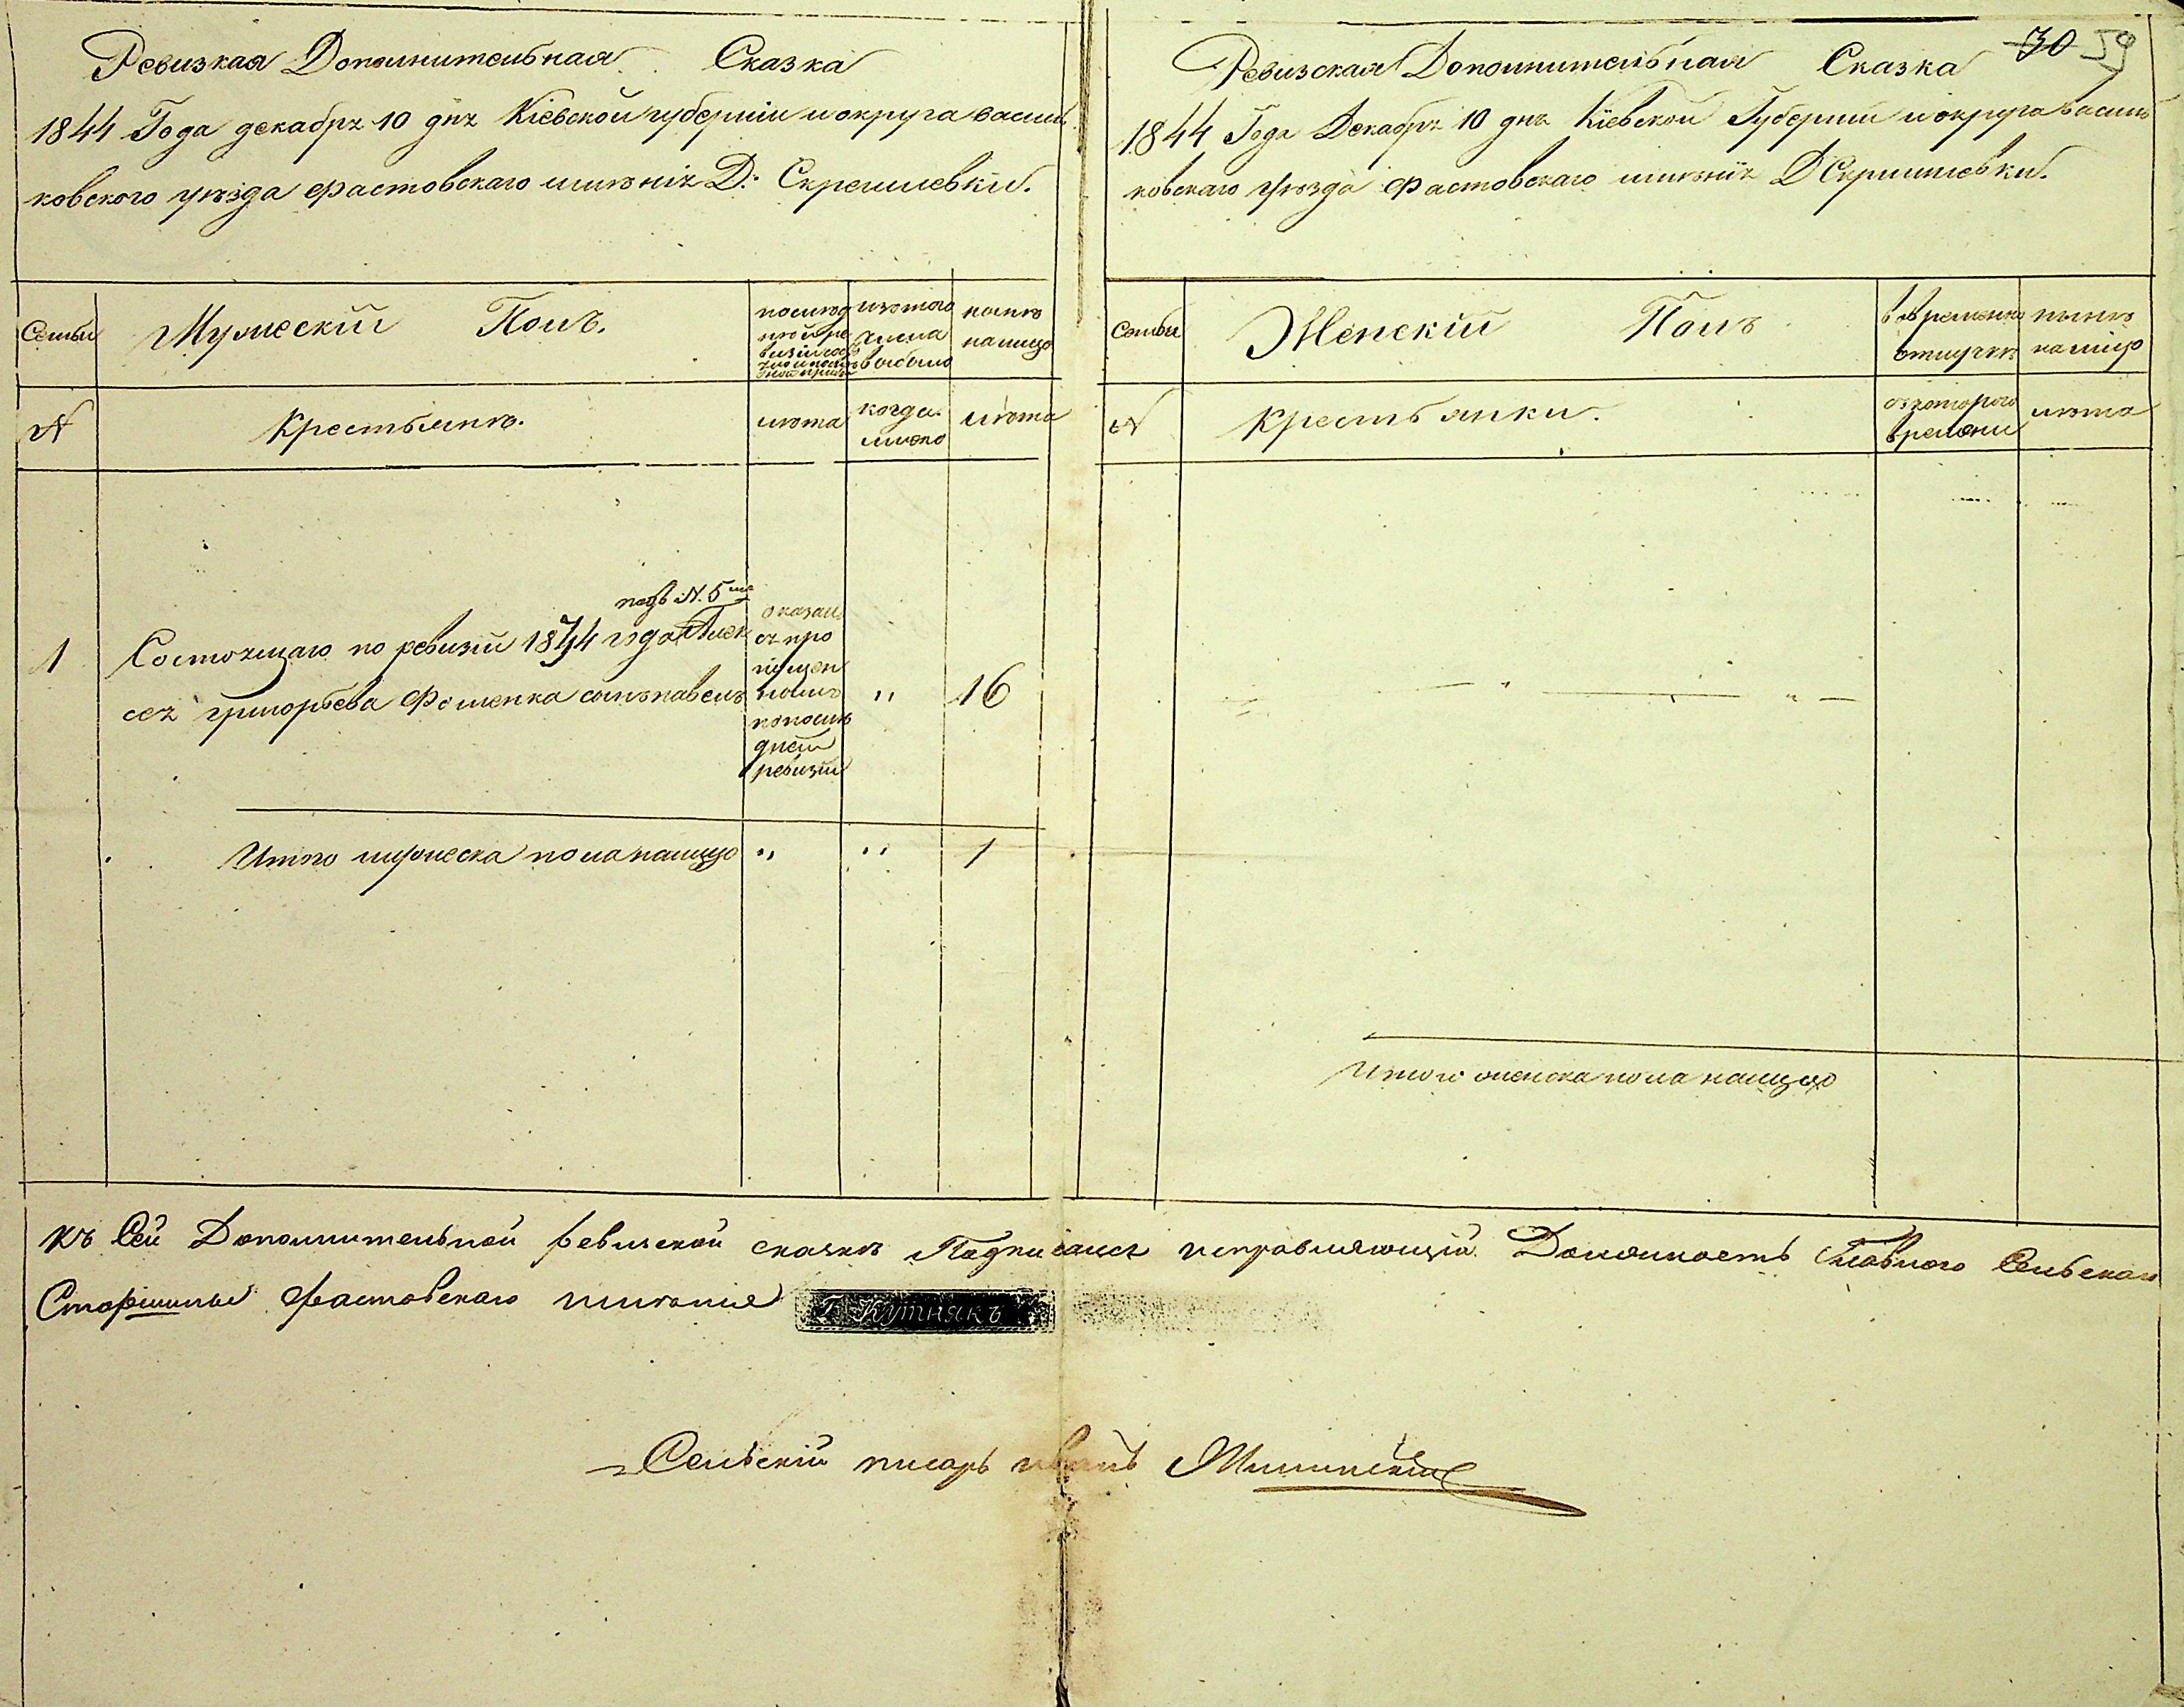 Ревизкая Дополнительная Сказка
1844 Года декабря 10 дня Кіевской губерніи и округа василь
ковского уѣзда фастовскаго имѣнія Д: Скремлевки.
Семьи
Мужескій Полъ.
послѣд
ней ре
визіи со
изъ того
числа
выбыло
нынѣ
на лицо
№
Крестьянъ.
лѣта
когда
имено
лѣта
подъ №. 5мъ
1
Состоящаго по ревизіи 1844 года Алек
сея григорьева Фоменка сынъ павелъ
оказал
ся про
пущен
нымъ
по послѣ
дней
ревизіи
"
16
Итого мужеска пола налицо
"
"
1
30 59
Ревизская Дополнительная Сказка
1844 Года Декабря 10 дня Кіевской Губерніи и округа василь
ковскаго уѣзда фастовскаго имѣнія Д Скримлевки.
Семьи
Женскій Полъ
во временно
отлучкѣ
нынѣ
на лицо
№
Крестьянки.
съ котораго
времени
лѣта
Итого женска пола налицо
Къ Сей Дополнительной ревизской сказкѣ Подписался исправляющій Должность Главного Сельскаго
Старшины Фастовскаго имѣнія
Г. Кутнякъ
Сельскій писарь иванъ